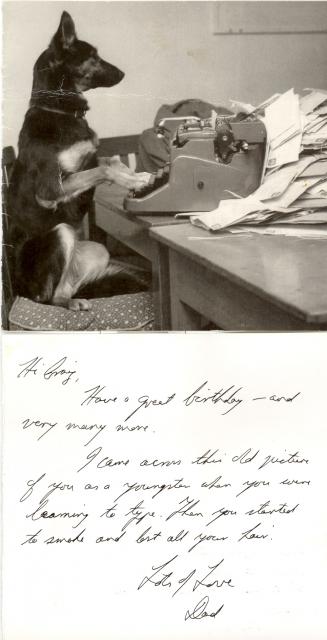 Hi Craig,
Have a great birthday – and
very many more.
I came across this old picture
of you as a youngster when you were
learning to type. Then you started
to smoke and lost all your hair.
Lots of Love
Dad